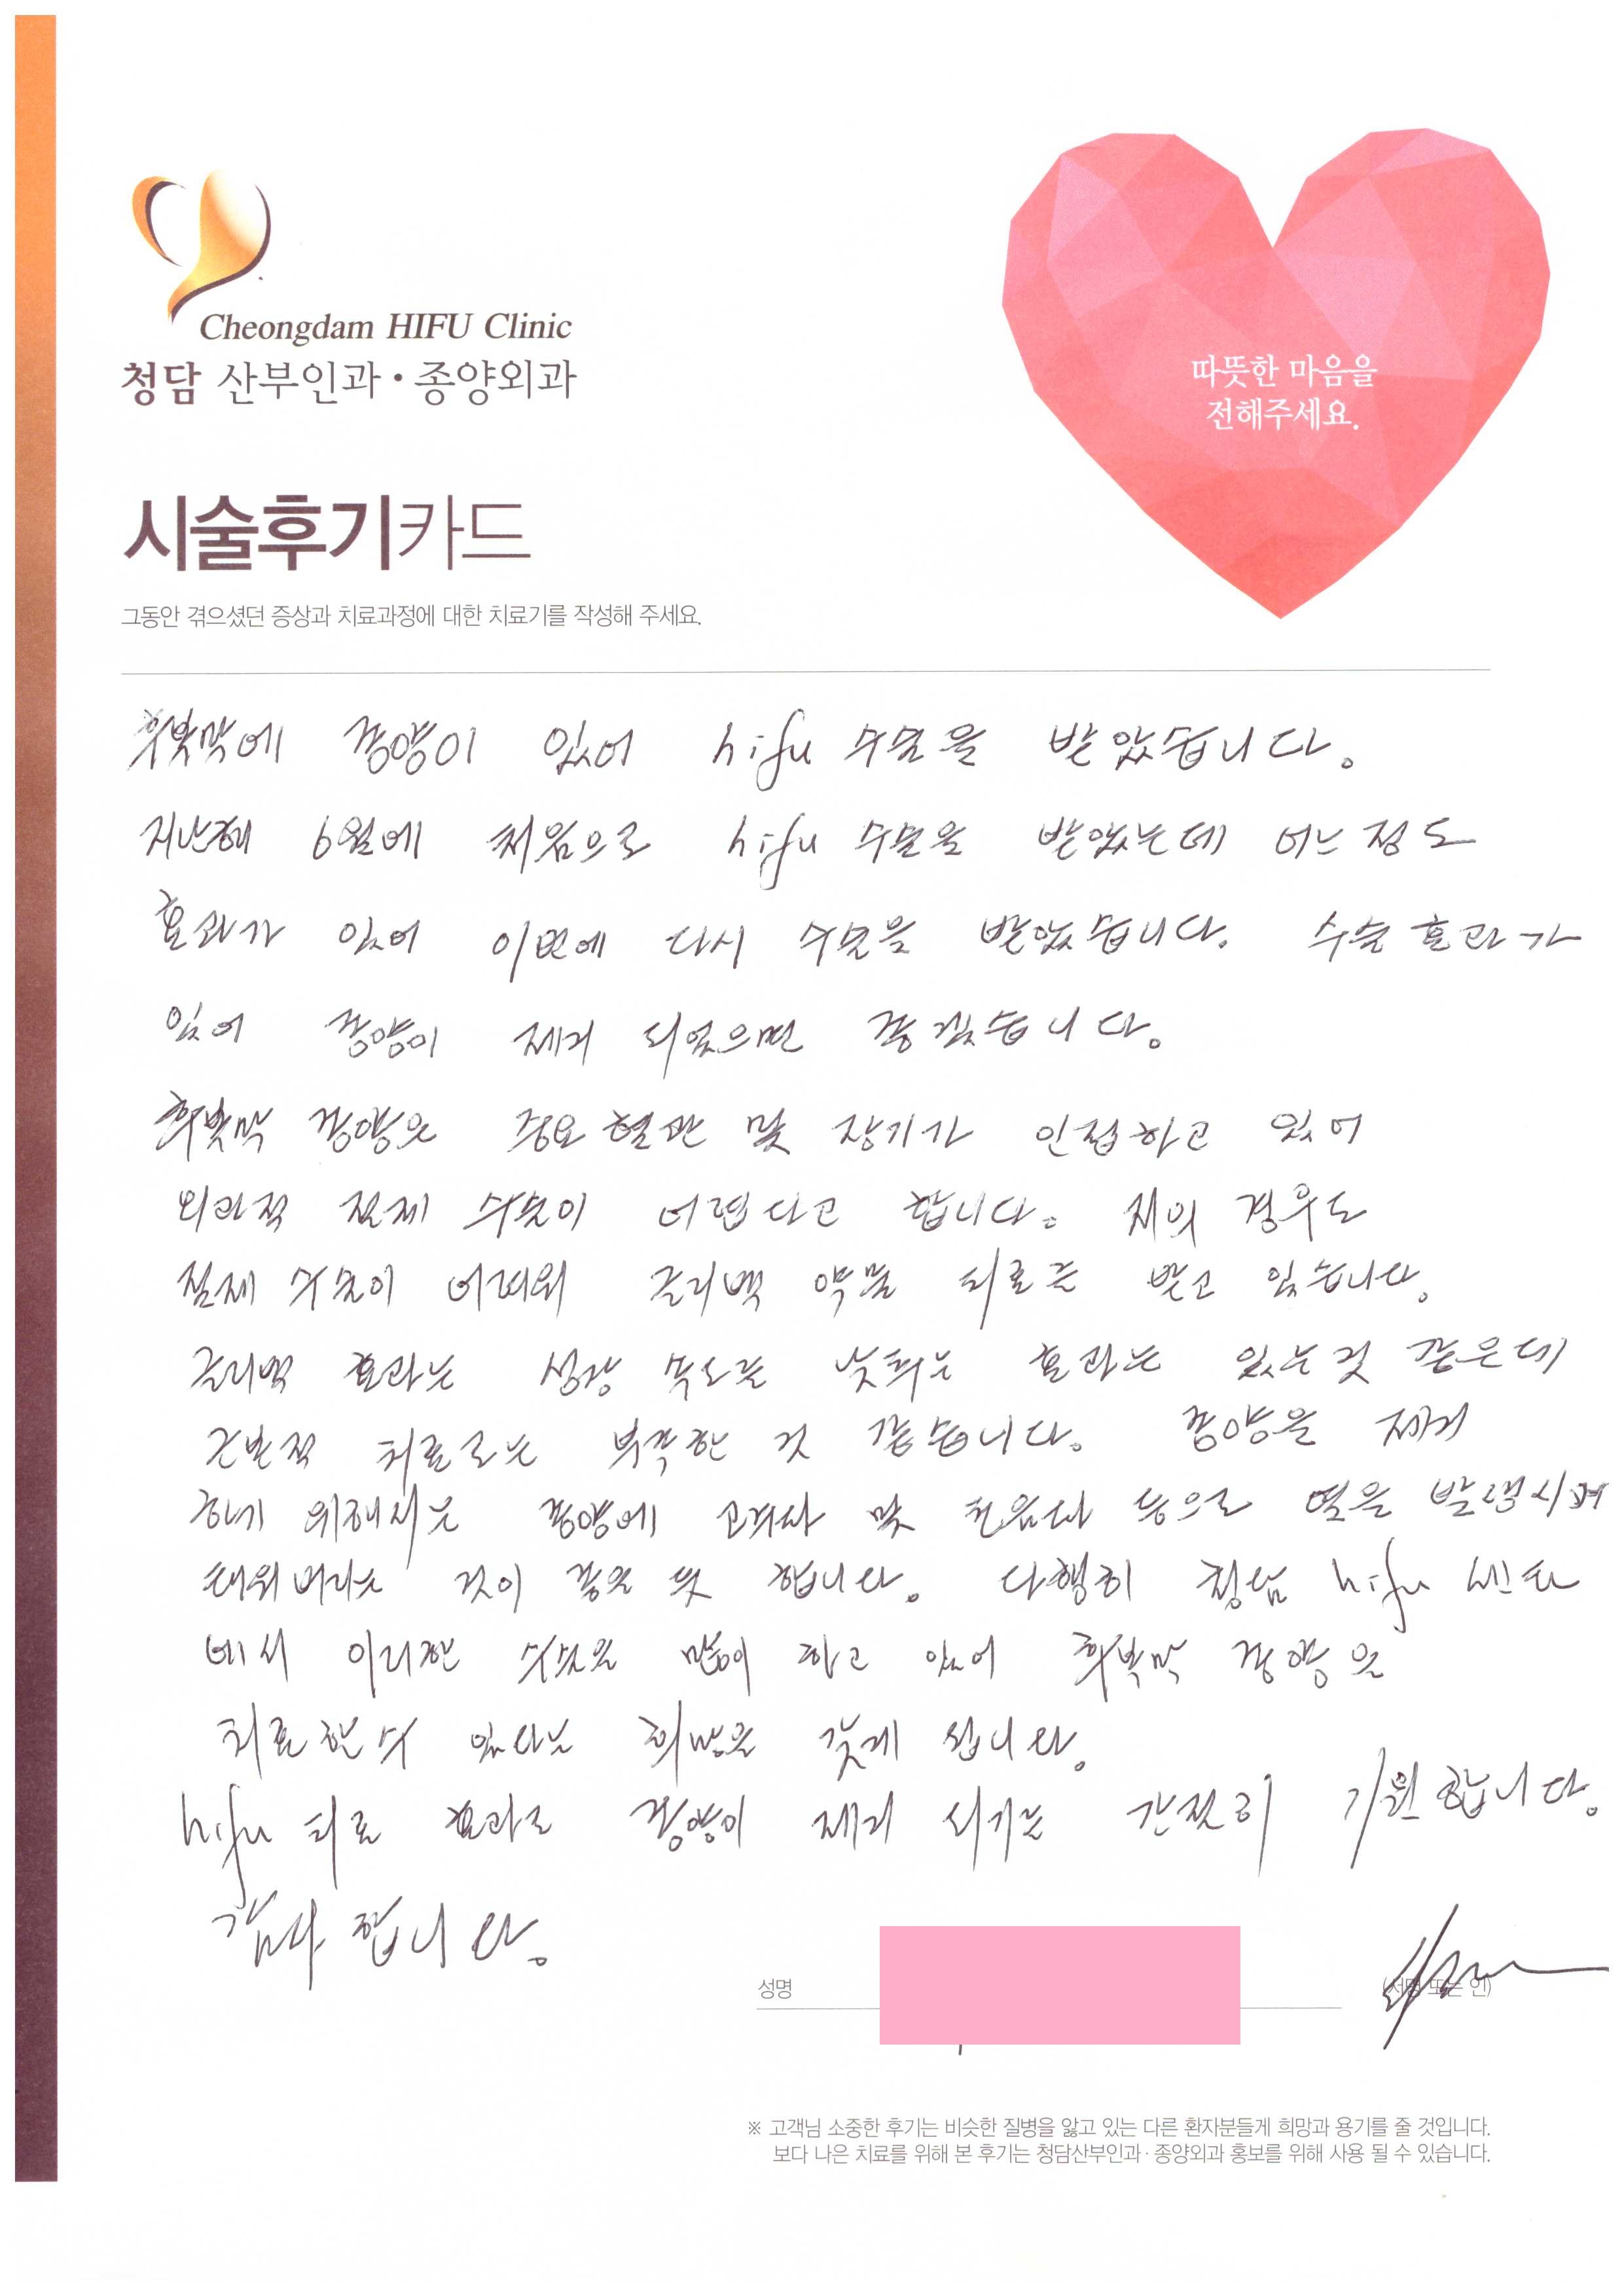 Cheongdam HIFU Clinic
청담 산부인과·종양외과
따뜻한 마음을
전해주세요.
시술후기카드
그동안 겪으셨던 증상과 치료과정에 대한 치료기를 작성해 주세요.
후복막에 종양이 있어 hifu 수술을 받았습니다.
지난해 6월에 처음으로 hifu 수술을 받았는데 어느 정도
효과가 있어 이번에 다시 수술을 받았습니다. 수술 효과가
있어 종양이 제거 되었으면 좋겠습니다.
후복막 종양은 중요 혈관 및 장기가 인접하고 있어
외과적 절제 수술이 어렵다고 합니다. 저의 경우도
절제 수술이 어려워 글리벡 약물 치료를 받고 있습니다.
글리벡 효과는 성장 속도를 낮추는 효과는 있는것 같은데
근본적 치료로는 부족한 것 같습니다. 종양을 제거
하기 위해서는 종양에 고주파 및 초음파 등으로 열을 발생시켜
태워버리는 것이 좋을 듯 합니다. 다행히 청담 hifu 센터
에서 이러한 수술을 많이 하고 있어 후복막 종양을
치료할수 있다는 희망을 갖게 됩니다.
hifu 치료 효과로 종양이 제거 되기를 간절히 기원합니다.
감사합니다.
성명
(서명 또는 인)
※ 고객님 소중한 후기는 비슷한 질병을 앓고 있는 다른 환자분들게 희망과 용기를 줄 것입니다.
보다 나은 치료를 위해 본 후기는 청담산부인과·종양외과 홍보를 위해 사용 될 수 있습니다.